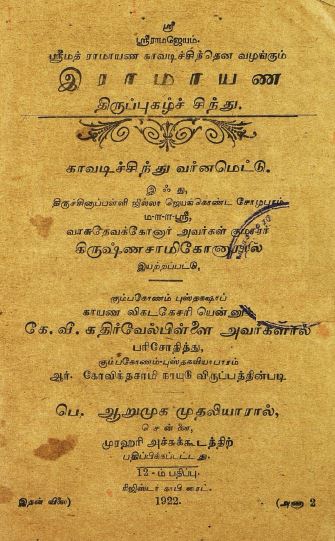 ஸ்ரீ
ஸ்ரீராமஜெயம்.
ஸ்ரீமத் ராமாயண காவடிச்சிந்தென வழங்கும்
இராமாயண
திருப்புகழ்ச் சிந்து.
காவடிச்சிந்து வர்னமெட்டு.
இஃது,
திருச்சினாப்பள்ளி ஜில்லா ஜெயங்கொண்ட சோழபுரம்
ம-ள-ள-ஸ்ரீ,
வாசுதேவக்கோனார் அவர்கள் குமாரர்
கிருஷ்ணசாமிகோனாரால்
இயற்றப்பட்டு,
கும்பகோணம் புஸ்தகஷாப்
காயன விகடகேசரி யென்னும்
கே. வீ. கதிர்வேல்பிள்ளை அவர்களால்
பரிசோதித்து,
கும்பகோணம்-புஸ்தகவியாபாரம்
ஆர். கோவிந்தசாமி நாயுடு விருப்பத்தின்படி
பெ. ஆறுமுக முதலியாரால்,
சென்னை,
முரஹரி அச்சுக்கூடத்திற்
பதிப்பிக்கப்பட்டது.
12-ம் பதிப்பு.
ரிஜிஸ்டர் காபி ரைட்.
இதன் விலை) 1922. (அணா 2